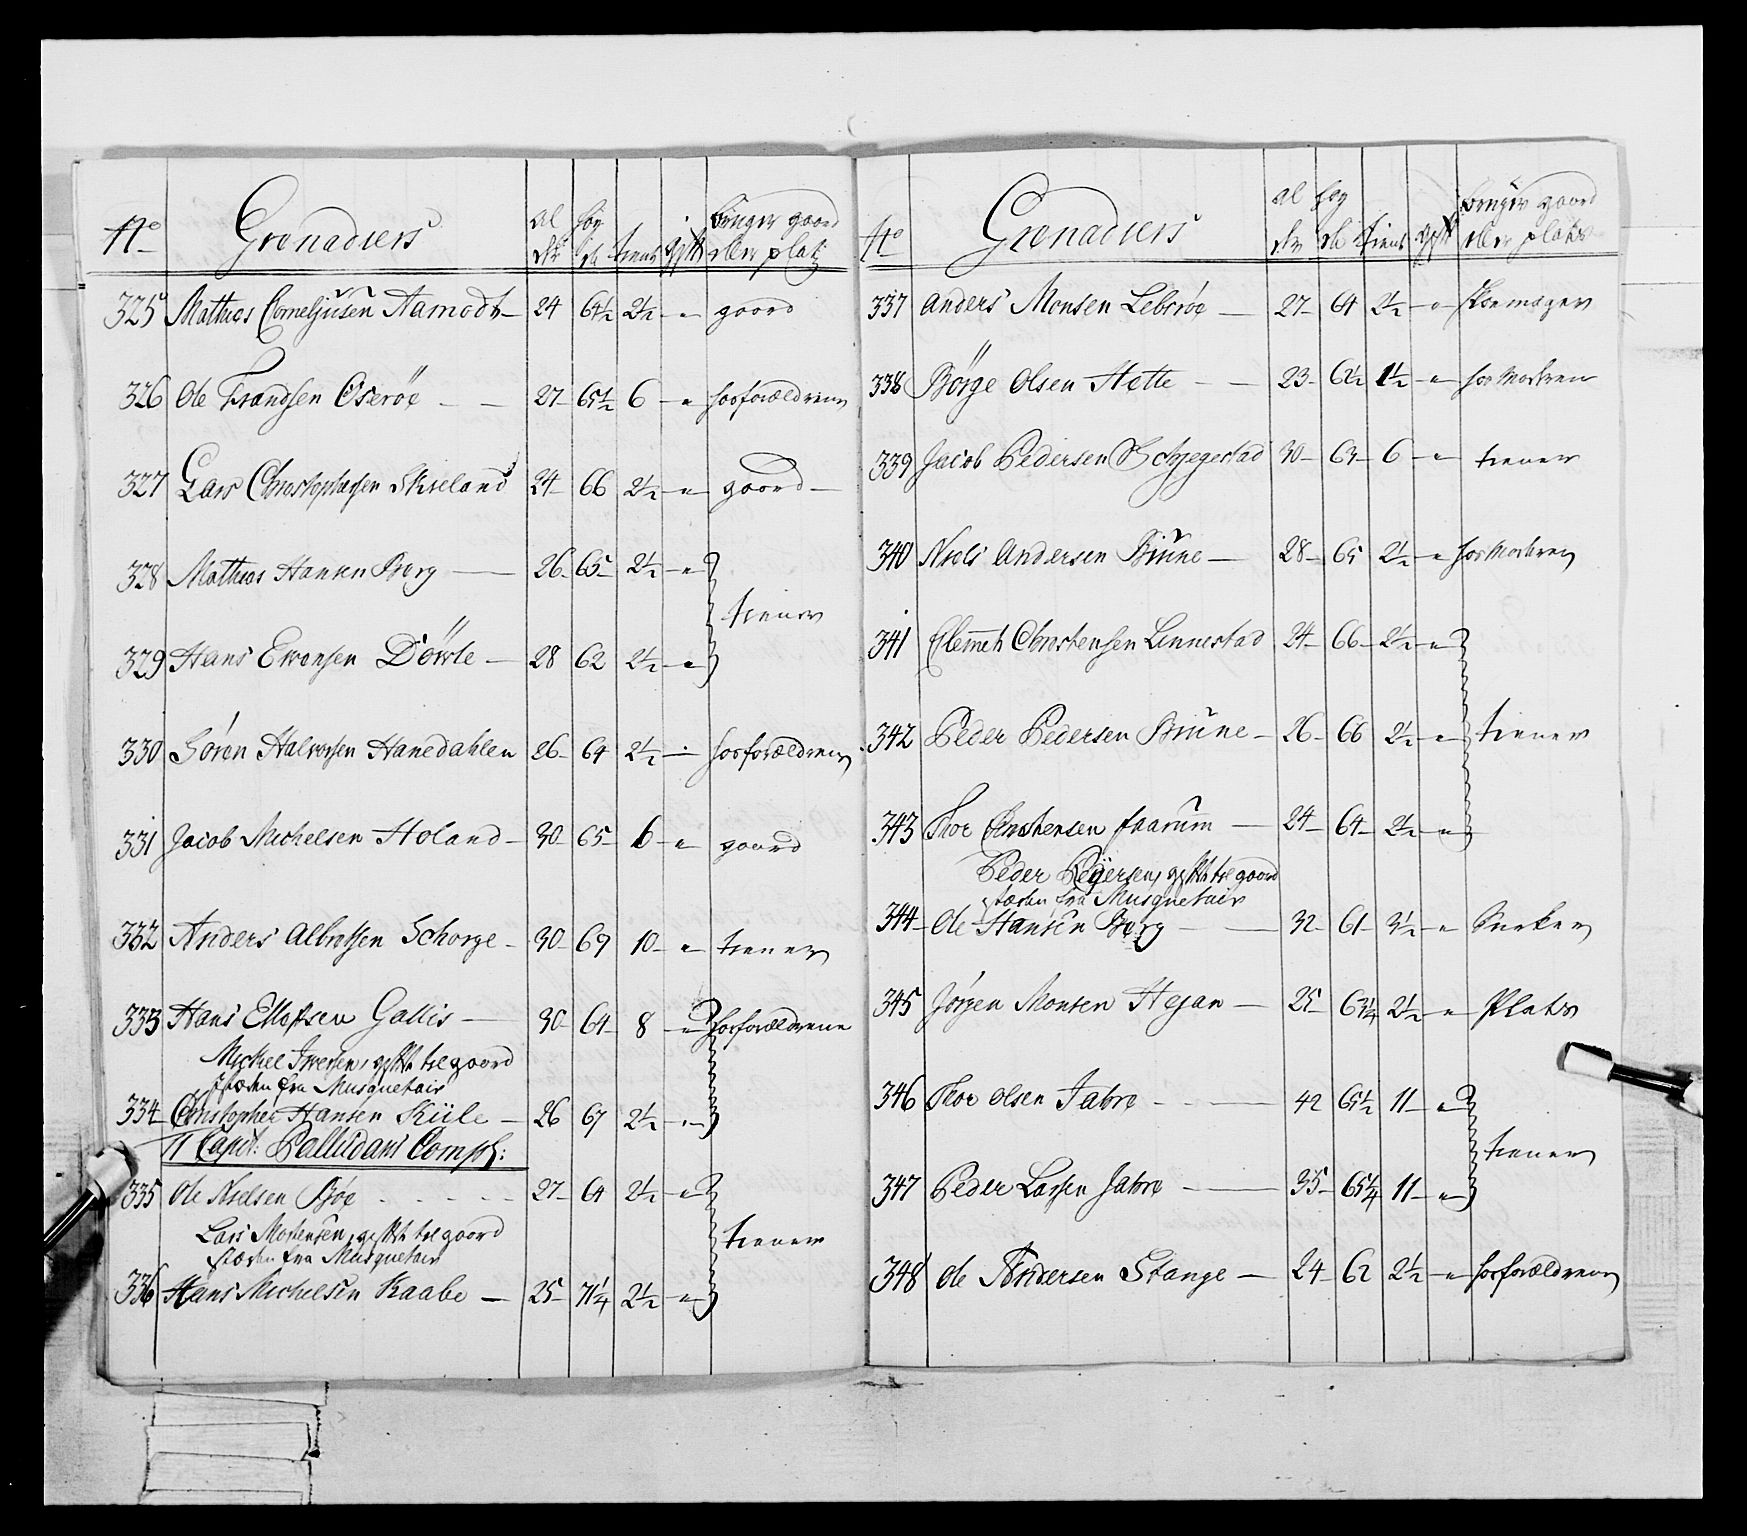 No Grenadiers al der høy de tienst gift bruger gaard eller platz
325 Mathias Corneljusen Aamodt 24 64½ 2½ " gaard
326 Ole Frandsen Oserøe 27 65½ 6 " hos forældrene
327 Lars Christophersen Skieland 24 66 2½ " gaard
328 Mathias Hansen Berg 26 65 2½ "
tiener
329 Hans Evensen Döwle 28 62 2½ "
330 Søren Halvorsen Hanedahlen 26 64 2½ " hos forældrene
331 Jacob Michelsen Holand 30 65 6 " gaard
332 Anders Albretsen Schorge 30 69 10 " tiener
333 Hans Ellefsen Gallis 30 64 8 " hos forældrene
Michel Iversen, gift til gaard
i stæden fra Musquetair
334 Christopher Hansen Kiile 26 67 2½ "
11 Capit: Palludans Comp:
335 Ole Nielsen Bøe 27 64 2½ "
Lars Mortensen, gift til gaard
stæden fra Musquetair
tiener
336 Hans Michelsen Raabe 25 71¼ 2½ "
No Grenadiers al der høy de tienst gift bruger gaard eller plats
337 Anders Monsen Lebrøe 27 64 2½ " skoemager
338 Børge Olsen Hette 23 62½ 1½ " hos Moderen
339 Jacob Pedersen Schjegestad 30 63 6 " tiener
340 Niels Andersen Brune 28 65 2½ " hos Moderen
341 Clemet Christensen Linnestad 24 66 2½ "
342 Peder Pedersen Brune 26 66 2½ " tiener
343 Thor Christensen Faarum 24 64 2½ "
Peder Regersen, gift til gaard
stæden fra Musquetair
344 Ole Hansen Berg 32 61 3½ " Sneker
345 Jørgen Monsen Hejan 25 63¼ 2½ " Plats
346 Thor Olsen Jabre 42 65½ 11 "
tiener
347 Peder Larsen Jabre 35 65¼ 11 "
348 Ole Andersen Stange 24 62 2½ " hos forældrene